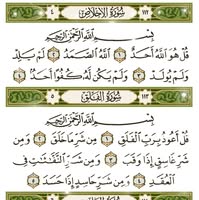 ١١٢ سُورَةُ الإِخْلَاصِ ٤
بِسْمِ ٱللَّهِ ٱلرَّحْمَٰنِ ٱلرَّحِيمِ
قُلْ هُوَ ٱللَّهُ أَحَدٌ ١ ٱللَّهُ ٱلصَّمَدُ ٢ لَمْ يَلِدْ
وَلَمْ يُولَدْ ٣ وَلَمْ يَكُن لَّهُۥ كُفُوًا أَحَدٌۢ ٤
١١٣ سُورَةُ الفَلَقِ
بِسْمِ ٱللَّهِ ٱلرَّحْمَٰنِ ٱلرَّحِيمِ
قُلْ أَعُوذُ بِرَبِّ ٱلْفَلَقِ ١ مِن شَرِّ مَا خَلَقَ ٢ وَمِن
شَرِّ غَاسِقٍ إِذَا وَقَبَ ٣ وَمِن شَرِّ ٱلنَّفَّٰثَٰتِ فِى
ٱلْعُقَدِ ٤ وَمِن شَرِّ حَاسِدٍ إِذَا حَسَدَ ٥